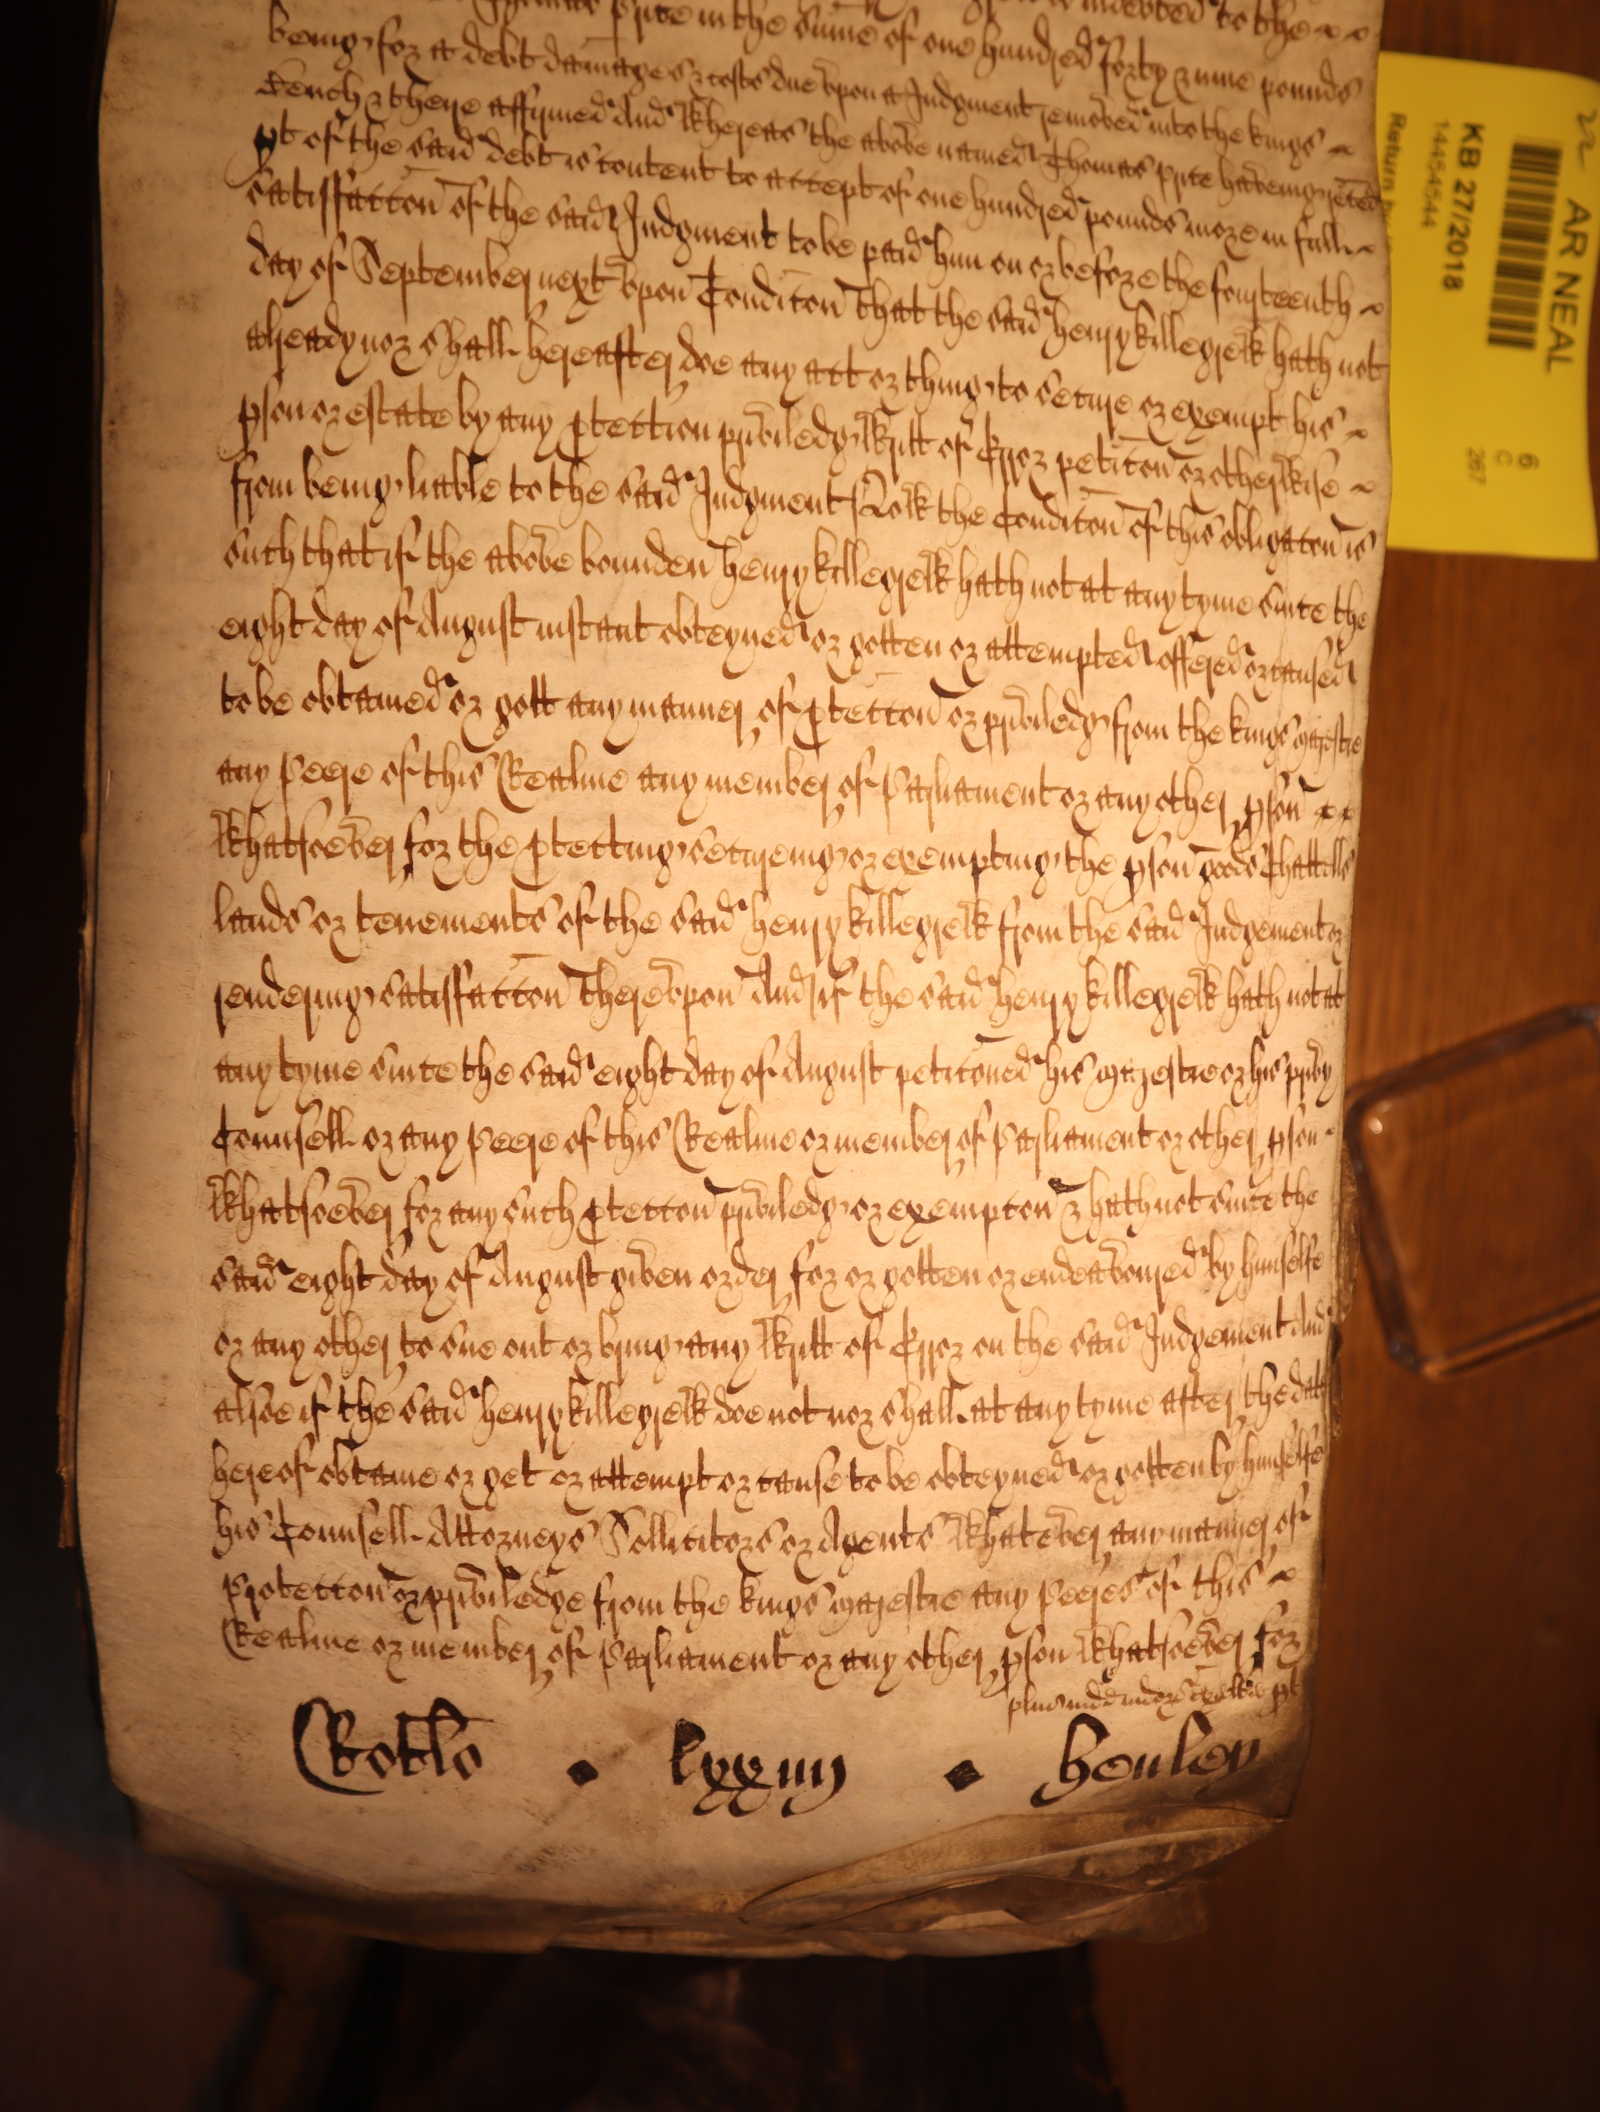 Pyte in the sume of one hundred forty & nine pounds
being for a debt damages & costs due vpon a Judgment removed into the kings
Bench & there affirmed And Whereas the above named Thomas Pyte haveing
pt of the said debt is content to accept of one hundred pounds more in full
satisfaccon of the said Judgment to be paid him on or before the fourteenth
day of September next vpon Condicon that the said henry killegrew hath not
already nor shall hereafter doe any act or thing to secure or exempt his
pson or estate by any pteccion priviledg Writt of Error peticon or otherwise
from being liable to the said Judgment Now the Condicon of this obligacon is
such that if the above bounden henry killegrew hath not at any tyme since the
eight day of August instant obteyned or gotten or attempted offered or caused
to be obtained or gott any manner of pteccon or priviledg from the kings Majestie
any Peere of this Realme any member of Parliament or any other pson
Whatsoever for the ptecting secureing or exempting the pson goods Chattells
lands or tenements of the said henry killegrew from the said Judgement or
rendering satisfaccon therevpon And if the said henry killegrew hath not at
any tyme since the said eight day of August peticoned his Majestie or his privy
Counsell or any Peere of this Realme or member of Parliament or other pson
Whatsoever for any such pteccon priviledg or exempcon & hath not since the
said eight day of August given order for or gotten or endeavoured by himselfe
or any other to sue out or bring any Writt of Error on the said Judgement And
alsoe if the said henry killegrew doe not nor shall at any tyme after the date
hereof obtaine or get or attempt or cause to be obteyned or gotten by himselfe
his Counsell Attorneys Sollicitors or Agents Whatever any manner of
Proteccon or priviledge from the kings Majestie any Peeres of this
Realme or member of Parliament or any other pson Whatsoever for
Rotlo lxxiiij henley
22 AR NEAL
KB 27/2018
14454544
Return
6
C
267